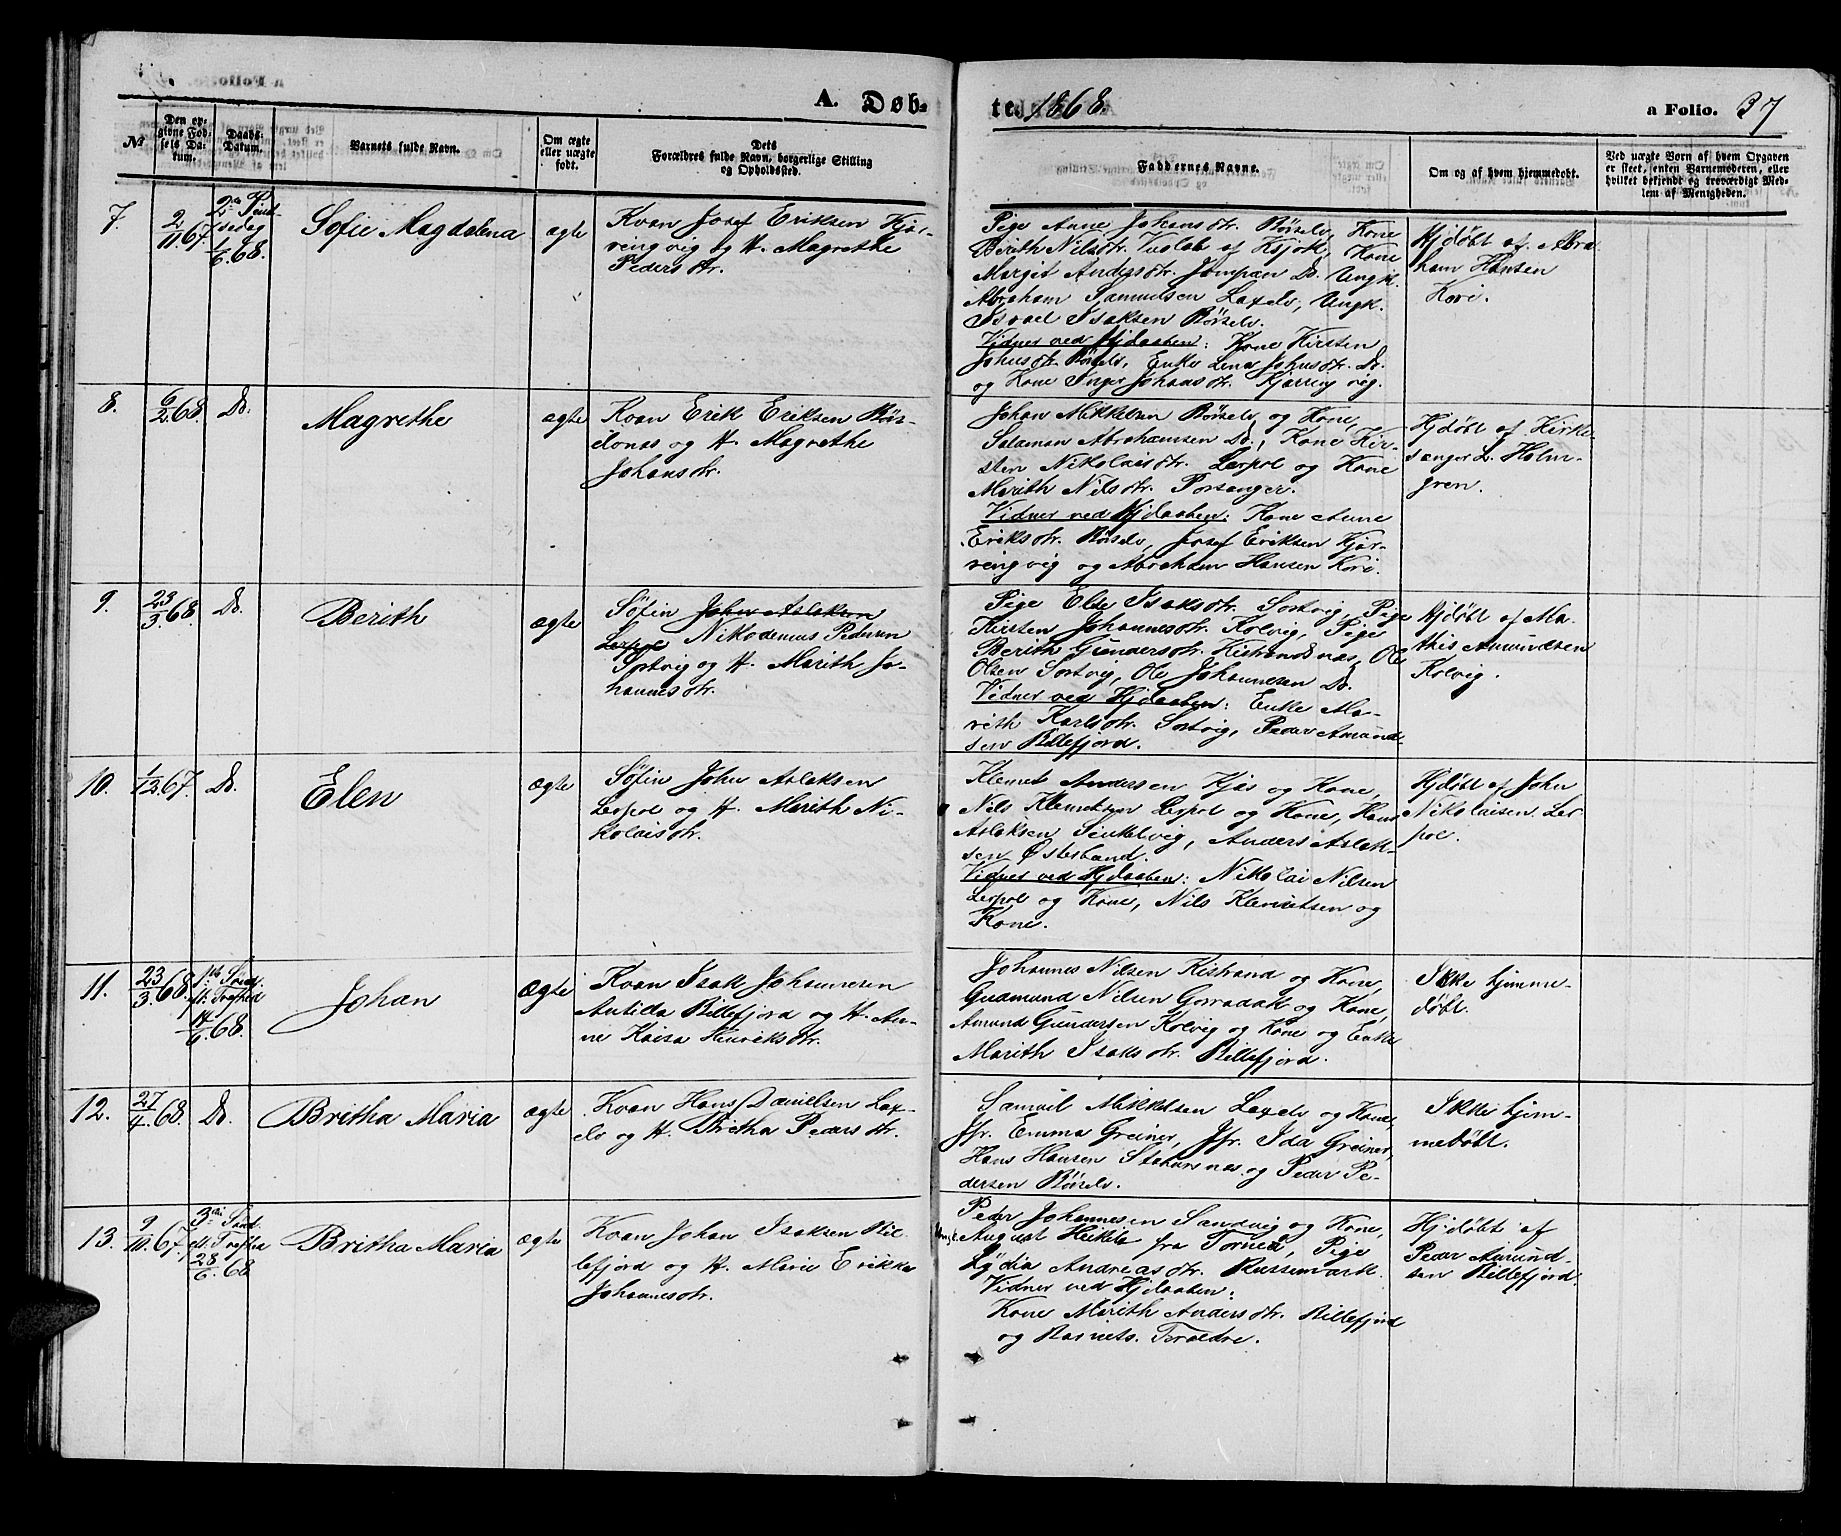 A. Døb-
te 1868.
a Folio. 37
№
Den op-
givne Fød-
sels Da-
tum.
Daabs-
Datum.
Barnets fulde Navn.
Om ægte
eller uægte
født.
Dets
Forældres fulde Navn, borgerlige Stilling
og Opholdssted.
Faddernes Navne.
Om og af hvem hjemmedøbt.
Ved uægte Børn af hvem Opgaven
er skeet, enten Barnemoderen, eller
hvilket bekjendt og troværdigt Med-
lem af Menigheden.
7.
2/11 67.
2den Pint-
sedag
1/6 68.
Sofie Magdalena
ægte
Kvan Josef Eriksen Kjær-
ringvig og H. Magrethe
Pedersdtr.
Pige Anne Johansdtr. Børselv, Kone
Berith Nilsdtr. af Kone
Margit Andersdtr. Do. Ungk.
Abraham Samuelsen Laxelv, Ungk.
Israel Isaksen Børselv.
Vidner ved Hjdaaben: Kone Kirsten
Johnsdtr. Børselv, Enke Lena Johnsdtr. Do.
og Kone Inger Johansdtr. Kjærringvig.
Hjdøbt af Abra-
ham Hansen
Kori.
8.
6/2 68.
Do.
Magrethe
ægte
Kvan Erik Eriksen Børs-
elvnæs og H. Magrethe
Johansdtr.
Johan Mikkelsen Børselv og Kone,
Salamon Abrahamsen Do., Kone Kir-
sten Nikolaisdtr. Lerpol og Kone
Marith Nilsdtr. Porsanger.
Vidner ved Hjdaaben: Kone Anne
Eriksdtr. Børselv, Josef Eriksen Kjær-
ringvig og Abraham Hansen Kori.
Hjdøbt af Kirke-
sanger L. Holm-
gren.
9.
23/3 68.
Do.
Berith
ægte
Søfin John Aslaksen
Lerpol Nikodemus Pedersen
Sortvig og H. Marith Jo-
hannesdtr.
Pige Else Isaksdtr. Sortvig, Pige
Kirsten Johannesdtr. Kolvig, Pige
Berith Gundersdtr. Kistrandsnæs, Ole
Olsen Sortvig, Ole Johannesen Do.
Vidner ved Hjdaaben: Enke Ma-
rith Karlsdtr. Sortvig, Peder Amund-
sen Billefjord.
Hjdøbt af Ma-
this Amundsen
Kolvig.
10.
1/12 67.
Do.
Elen
ægte
Søfin John Aslaksen
Lerpol og H. Marith Ni-
kolaisdtr.
Klemet Andersen Kjæs og Kone,
Nils Klemetsen Lerpol og Kone, Hans
Aslaksen Sinkelvig, Anders Aslak-
sen Østerbund.
Vidner ved Hjdaaben: Nikolai Nilsen
Lerpol og Kone, Nils Klemetsen og
Kone.
Hjdøbt af John
Nikolaisen Ler-
pol.
11.
23/3 68.
1ste Sønd.
e. Trefhed
14/6 68.
Johan
ægte
Kvan Isak Johannesen
Antilla Billefjord og H. An-
ne Kaisa Henriksdtr.
Johannes Nilsen Kistrand og Kone,
Gudmund Nilsen Gorradak og Kone,
Amund Gundersen Kolvig og Kone og Enke
Marith Isaksdtr. Billefjord.
Ikke hjemme-
døbt.
12.
27/4 68.
Do.
Britha Maria
ægte
Kvan Hans Danielsen Lax-
elv og H. Britha Pedersdtr.
Samuel Mikkelsen Laxelv og Kone,
Jfr. Emma Greiner, Jfr. Ida Greiner,
Hans Hansen Stabursnæs og Peder Pe-
dersen Børselv.
Ikke hjem-
medøbt.
13.
9/10 67.
3die Sønd.
e. Trefhed
28/6 68
Britha Maria
ægte
Kvan Johan Isaksen Bil-
lefjord og H. Marie Erikka
Johannesdtr.
Peder Johannesen Sandvig og Kone,
Ungk. August Heikila fra Torneå, Pige
Lydia Andreasdtr. Russemark.
Vidner ved Hjdaaben:
Kone Marith Andersdtr. Billefjord
og Barnets Forældre.
Hjdøbt af
Peder Amund-
sen Billefjord